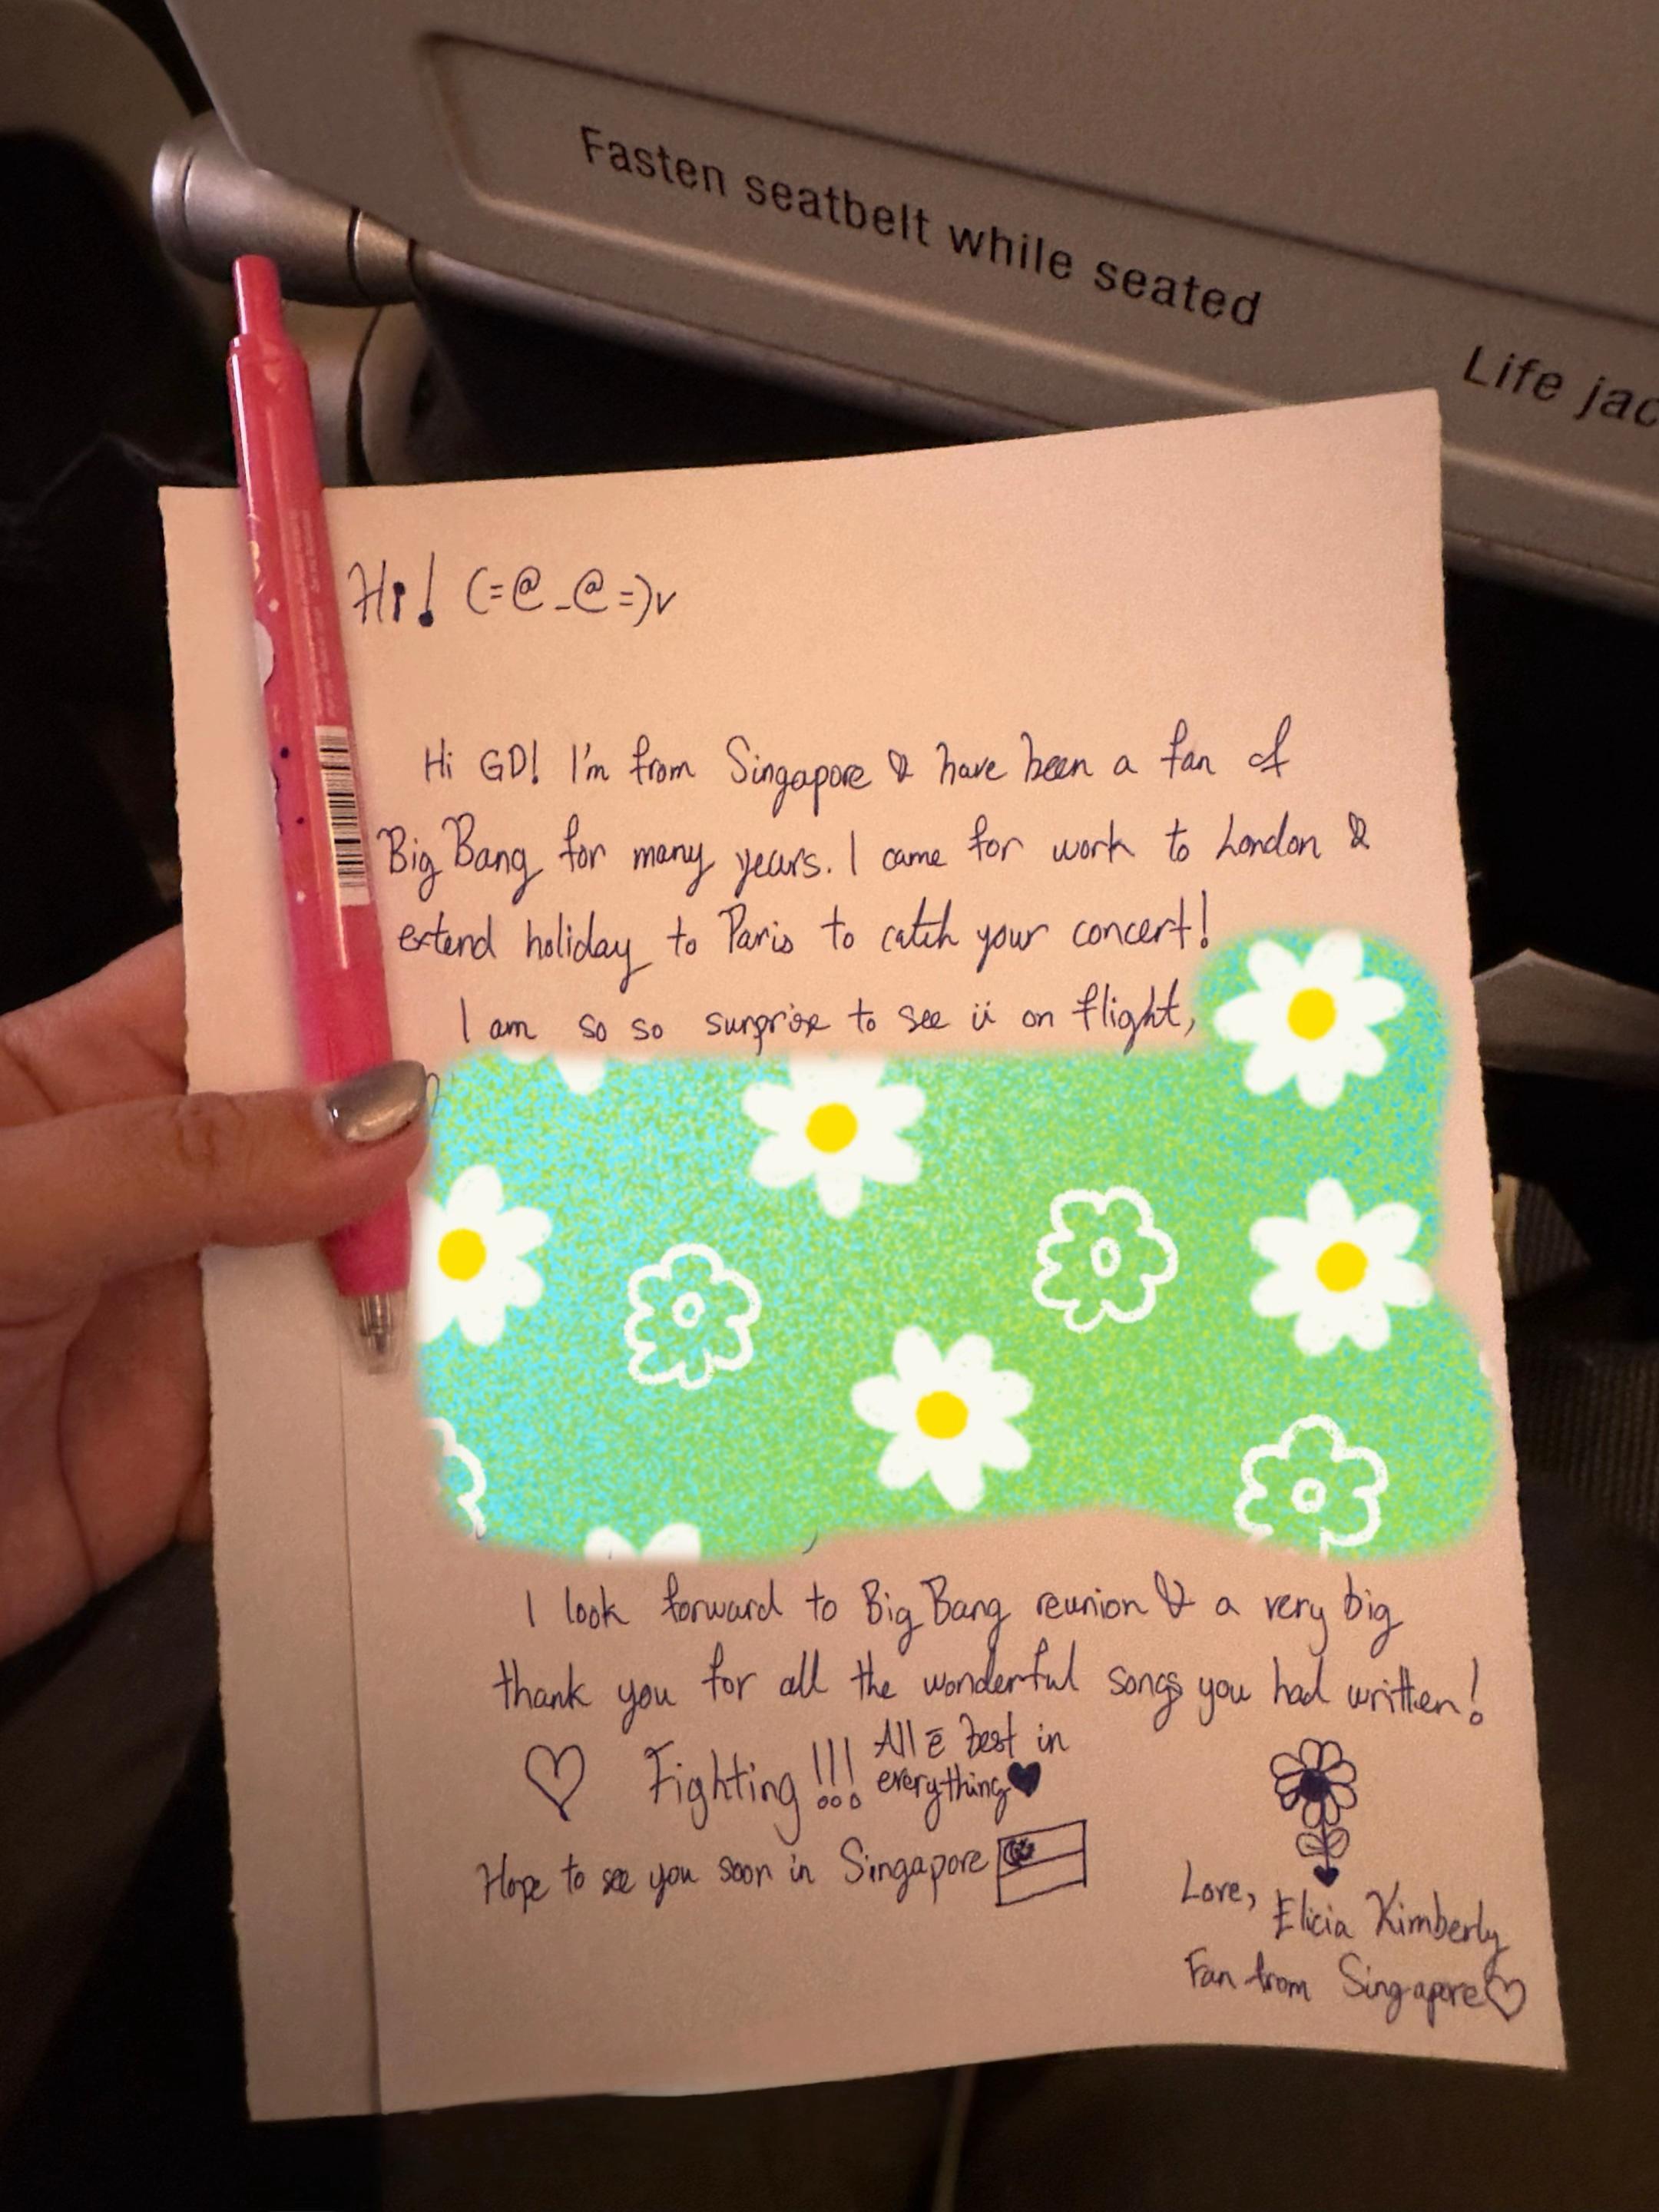 Fasten seatbelt while seated
Life jac
Hi! (=@_@=)v
Hi GD! I'm from Singapore & have been a fan of
Big Bang for many years. I came for work to London &
extend holiday to Paris to catch your concert!
I am so so surprise to see ü on flight,
I look forward to Big Bang reunion & a very big
thank you for all the wonderful songs you had written!
♡ Fighting!!! All ē best in
everything♥
Hope to see you soon in Singapore
Love, Elicia Kimberly
Fan from Singapore♡